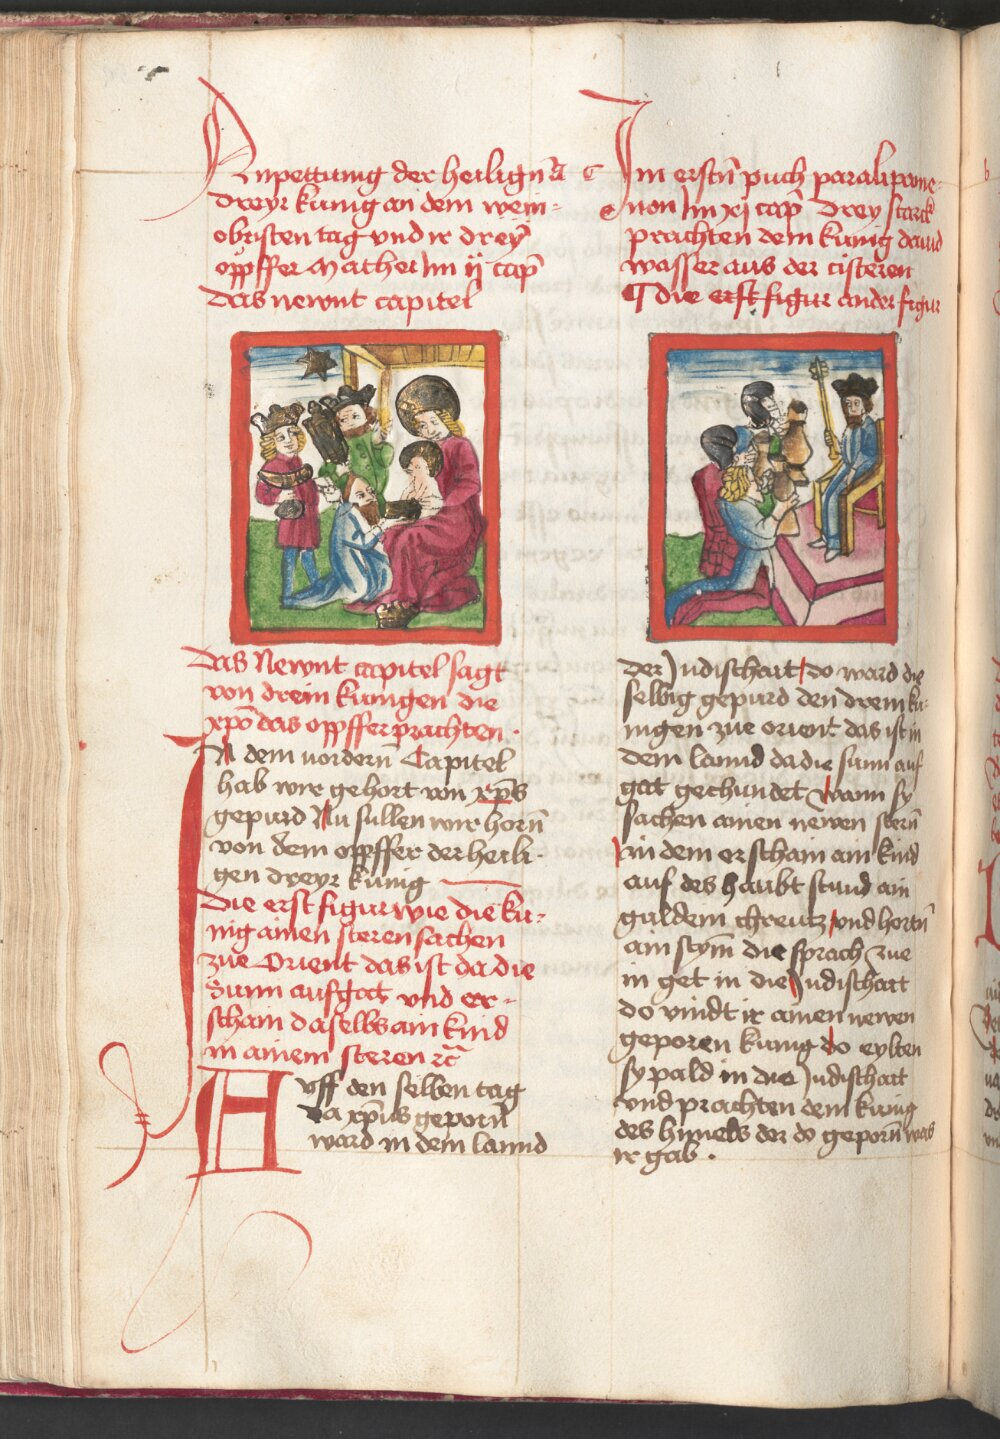 Anpettung der heiligñ
dreyr kunig an dem wein-
obristen tag vnd ir dreÿ
opffer Mathei im ij cap̄
das newnt capitel
Das Newnt capitel sagt
von drein kunigen die
xpō das opffer prachten ·
In dem vordern̄ Capitel
hab wir gehort von xp̄s
gepurd Nu sullen wir horn̄
von dem opffer der heili-
gen dreyr kunig
Die erst figur wie die ku-
nig ainen steren sachen
zue Orient das ist da die
Sunn aufgat vnd er-
schain daselbs ain kind
in ainem steren ꝛc̄
Auff den selben tag
da xp̄us geporn̄
ward in dem lannd
Im erstn̄ puch paralipome-
non im xj cap̄ Drey starck
prachten dem kunig dauid
wasser aus der cisteren
¶ die erst figur ander figur
der Judischait do ward die
selbig gepurd den drein ku-
nigen zue orient das ist in
dem lannd da die sunn auf
gat gechundet wann sy
sachen ainen newen stern̄
in dem erschain ain kind
auf des haubt stund ain
guldein chreutz vnd hortn̄
ain stym̄ die sprach zue
in get in die Judischait
do vindt ir ainen newen
geporen kunig do eylten
sy pald in die Judischait
vnd prachten dem kunig
des himels der do geporn̄ was
ir gab ·